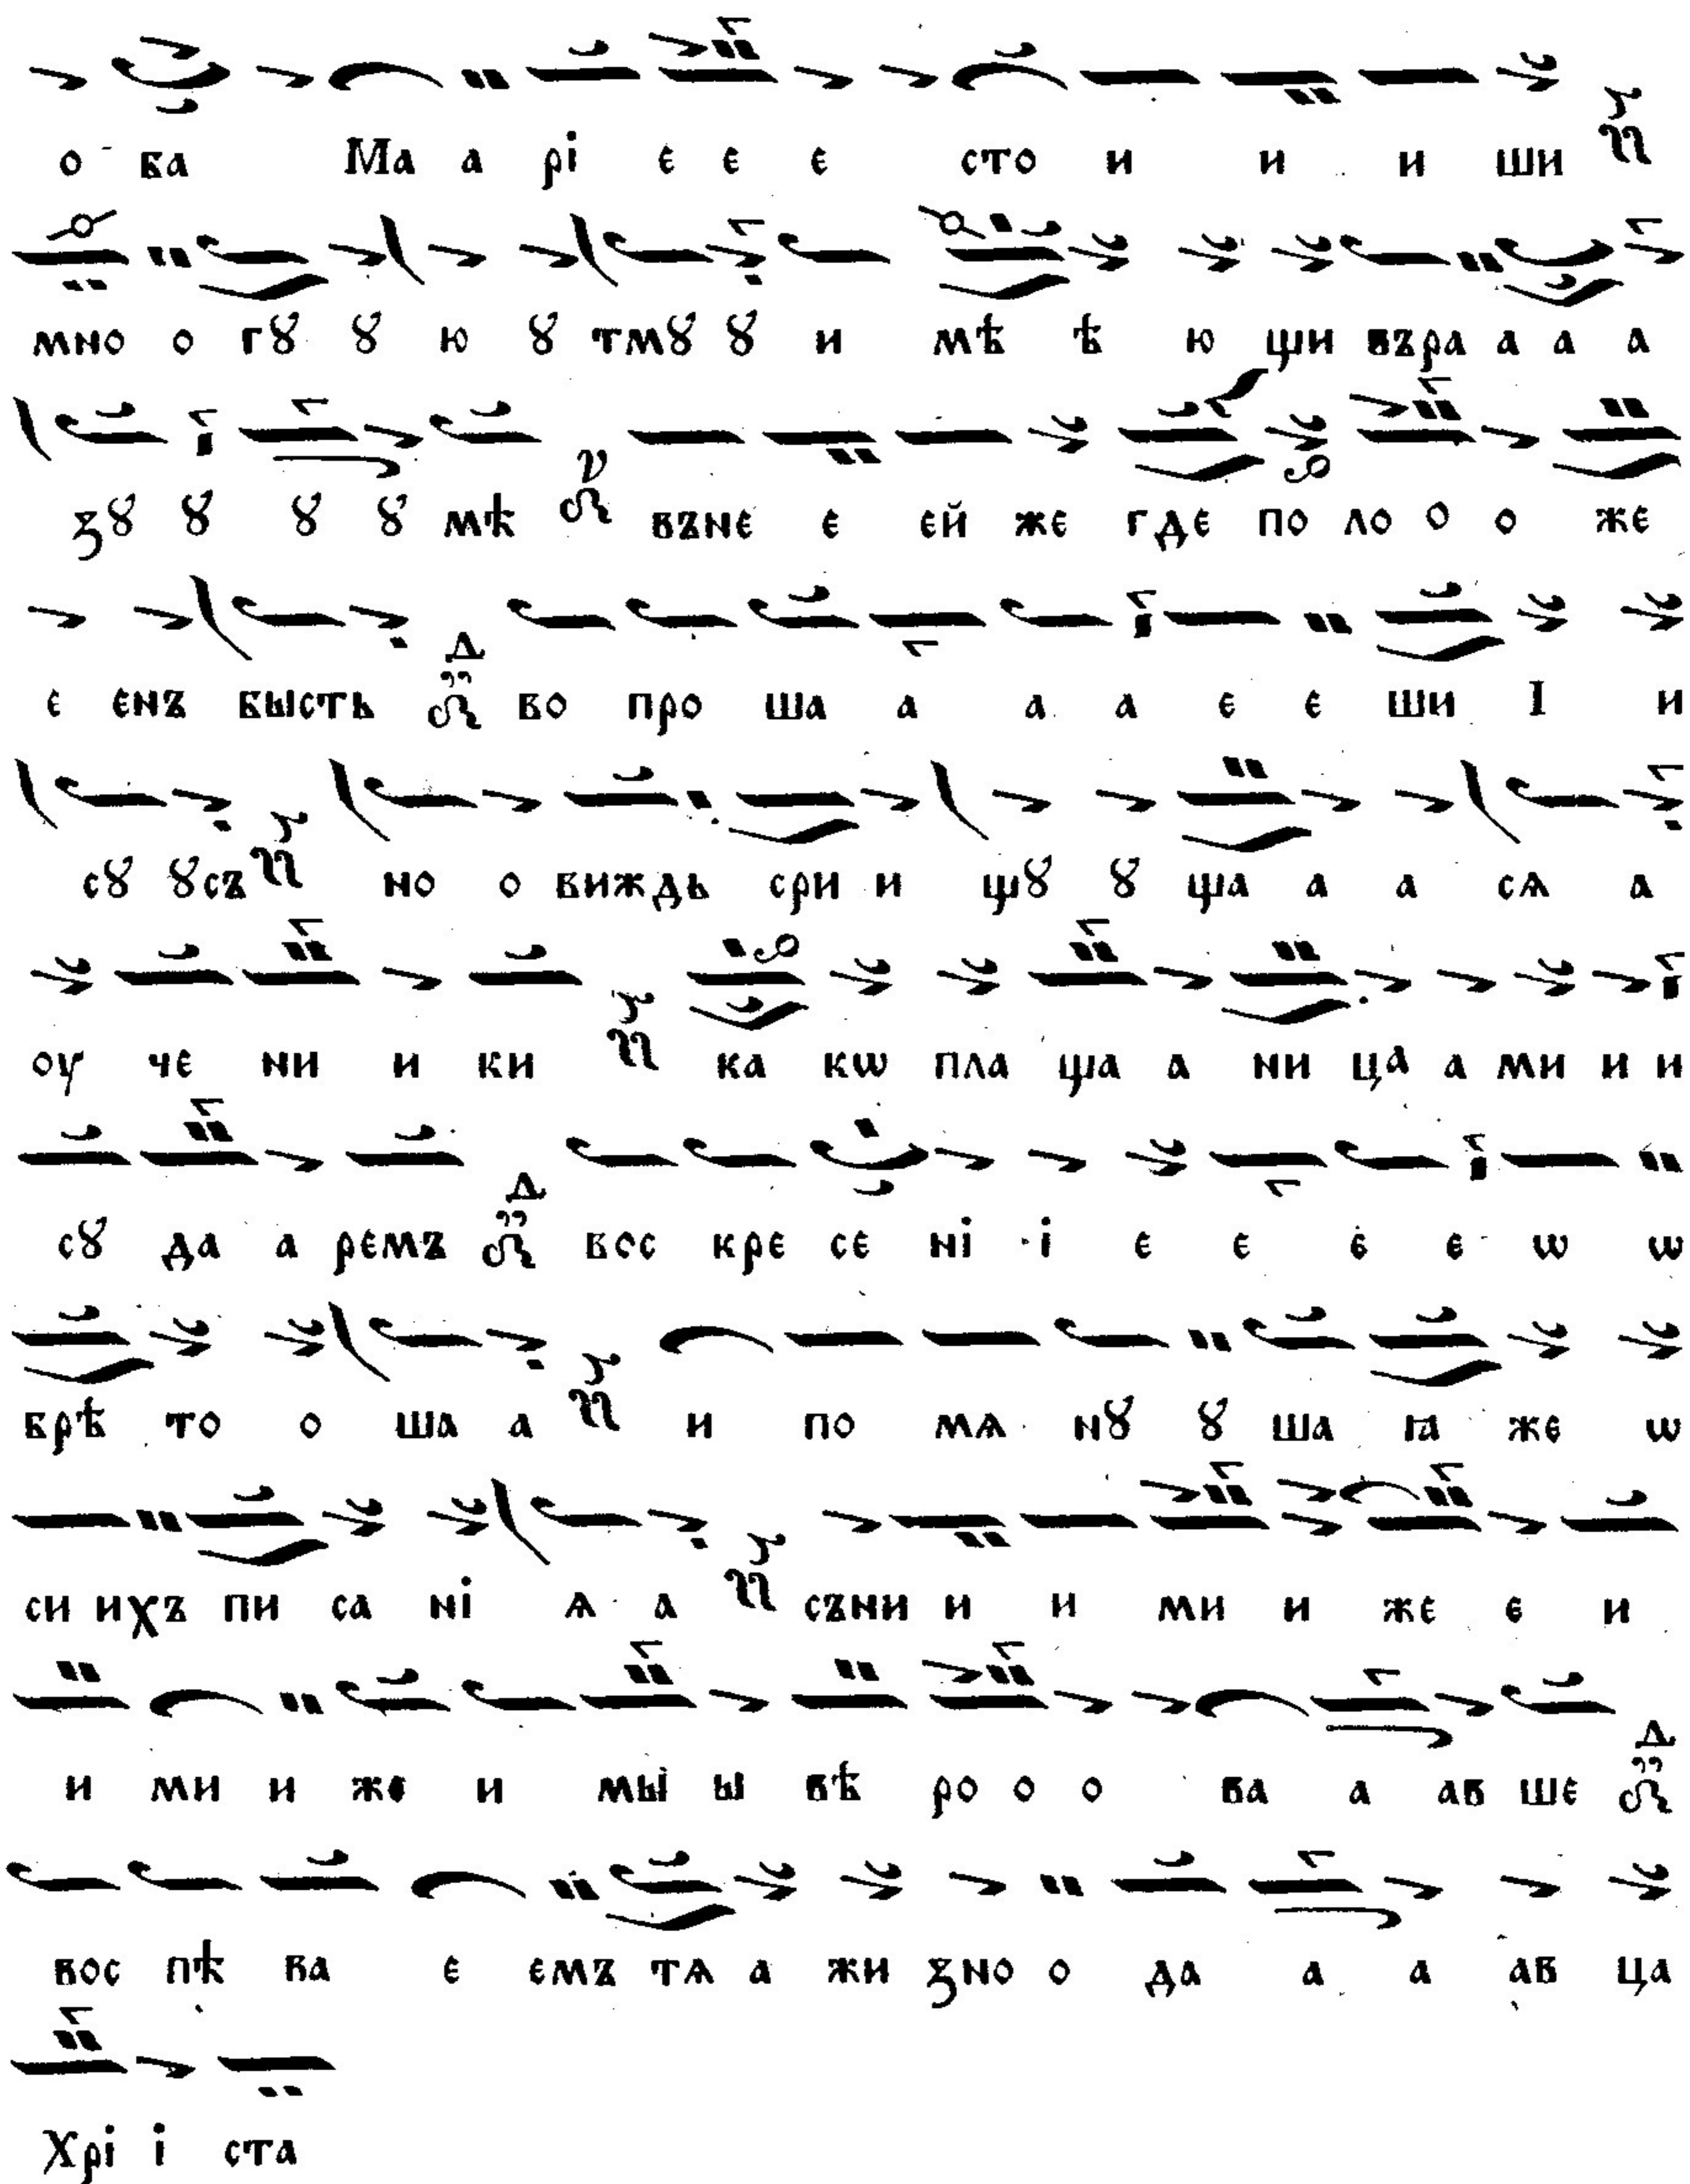 о ва Ма а рі є є є сто и и и ши
мно о гꙋ ꙋ ю ꙋ тмꙋ ꙋ и мѣ ѣ ю щи въра а а а
зꙋ ꙋ ꙋ ꙋ мѣ вънє є єй жє гдє по ло о о жє
є єнъ бысть во про ша а а а є є ши І и
сꙋ ꙋсъ но о виждь сри и щꙋ ꙋ ща а а сѧ а
оу чє ни и ки ка кѡ пла ща а ни ца а ми и и
сꙋ да а рємъ вос крє сє ні і є є є є ѡ ѡ
брѣ то о ша а и по мѧ нꙋ ꙋ ша ꙗ жє ѡ
си ихъ пи са ні ѧ а съни и и ми и жє є и
и ми и жє и мы ы вѣ ро о о ва а ав шє
вос пѣ ва є ємъ тѧ а жи зно о да а а ав ца
Хрі і ста